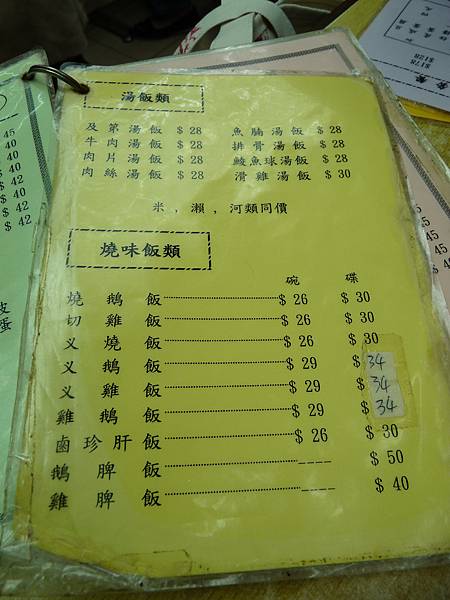 湯飯類
及第湯飯 $ 28 魚腩湯飯 $ 28
牛肉湯飯 $ 28 排骨湯飯 $ 28
肉片湯飯 $ 28 鯪魚球湯飯 $ 28
肉絲湯飯 $ 28 滑雞湯飯 $ 30
米，瀨，河類同價
燒味飯類
碗 碟
燒鵝飯 $ 26 $ 30
切雞飯 $ 26 $ 30
义燒飯 $ 26 $ 30
义鵝飯 $ 29 $ 34
义雞飯 $ 29 $ 34
雞鵝飯 $ 29 $ 34
鹵珍肝飯 $ 26 $ 30
鵝脾飯 ---- $ 50
雞脾飯 ---- $ 40
45
40
40
$ 42
$ 40
$ 42
$ 42
蛋
$178
$128